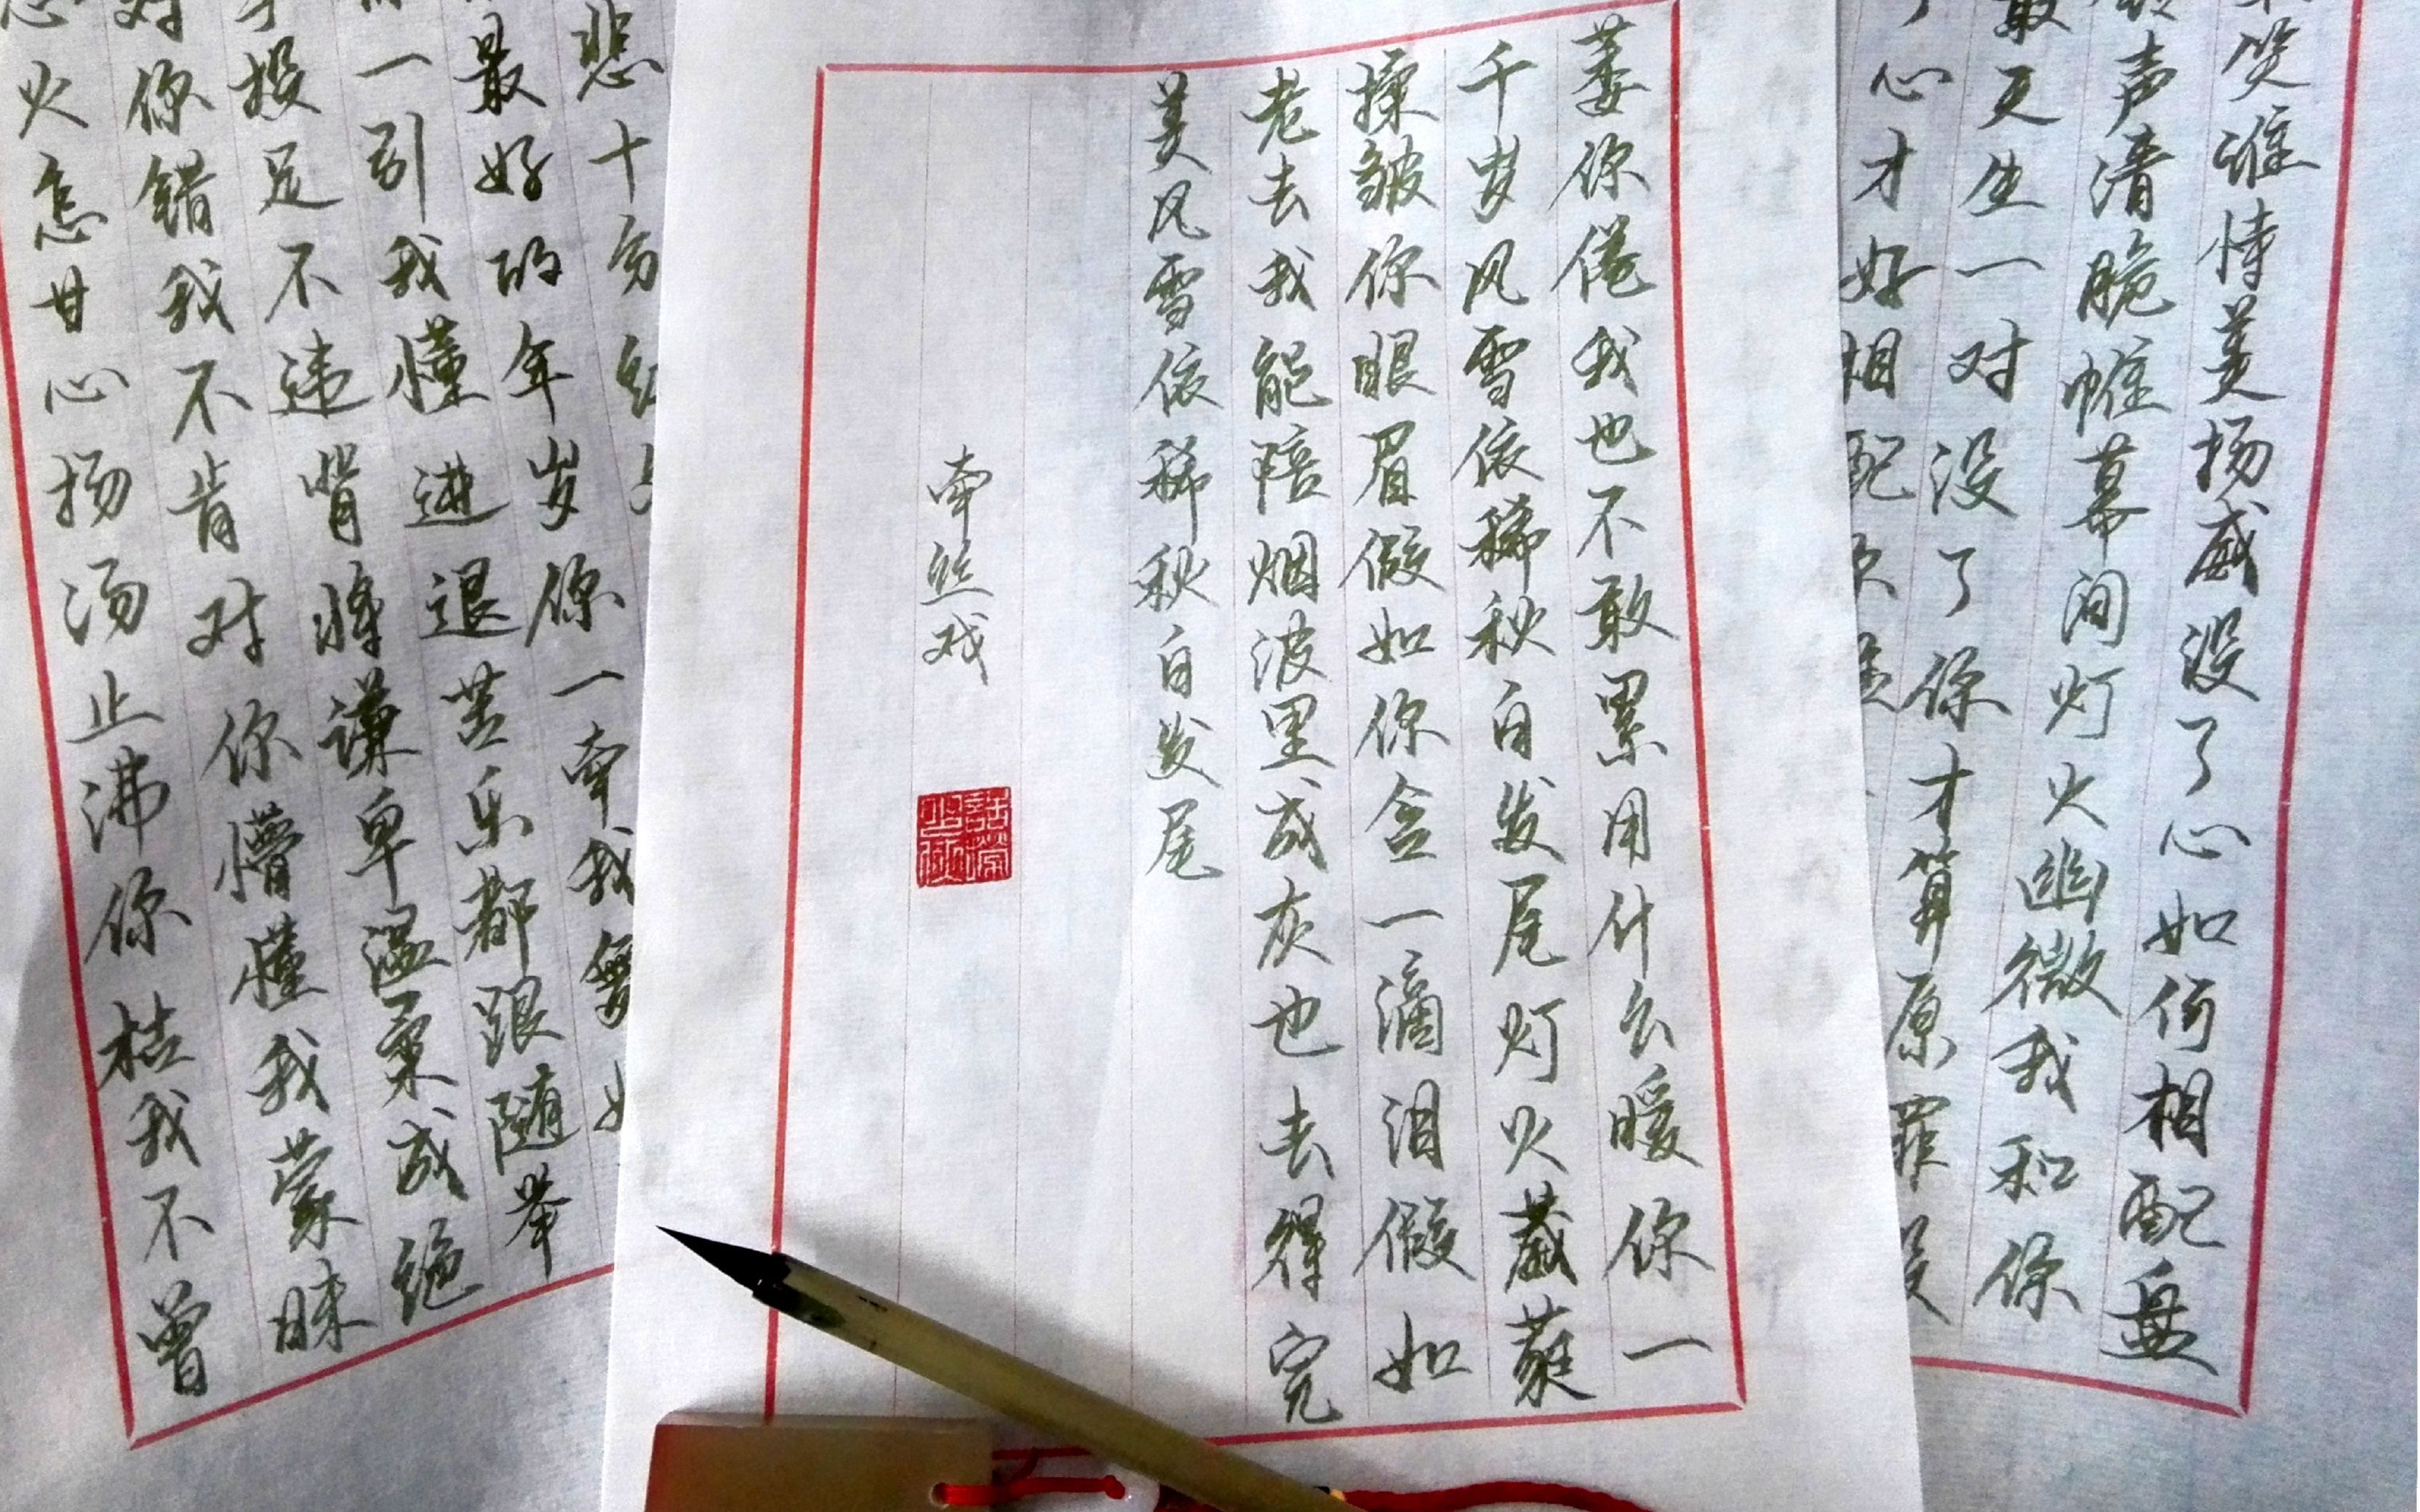 笑谁恃美扬威没了心如何相配盘
铃声清脆帷幕间灯火幽微我和你
最天生一对没了你才算原罪没
了心才好相配
萎你倦我也不敢累用什么暖你一
千岁风雪依稀秋白发尾灯火葳蕤
揉皱你眼眉假如你舍一滴泪假如
老去我能陪烟波里成灰也去得完
美风雪依稀秋白发尾
牵丝戏
悲十分红
最好的年岁你一牵我舞如
一引我懂进退苦乐都跟随举
手投足不违背将谦卑温柔成绝
对你错我不肯对你懵懂我蒙昧
心火怎甘心扬汤止沸你枯我不曾